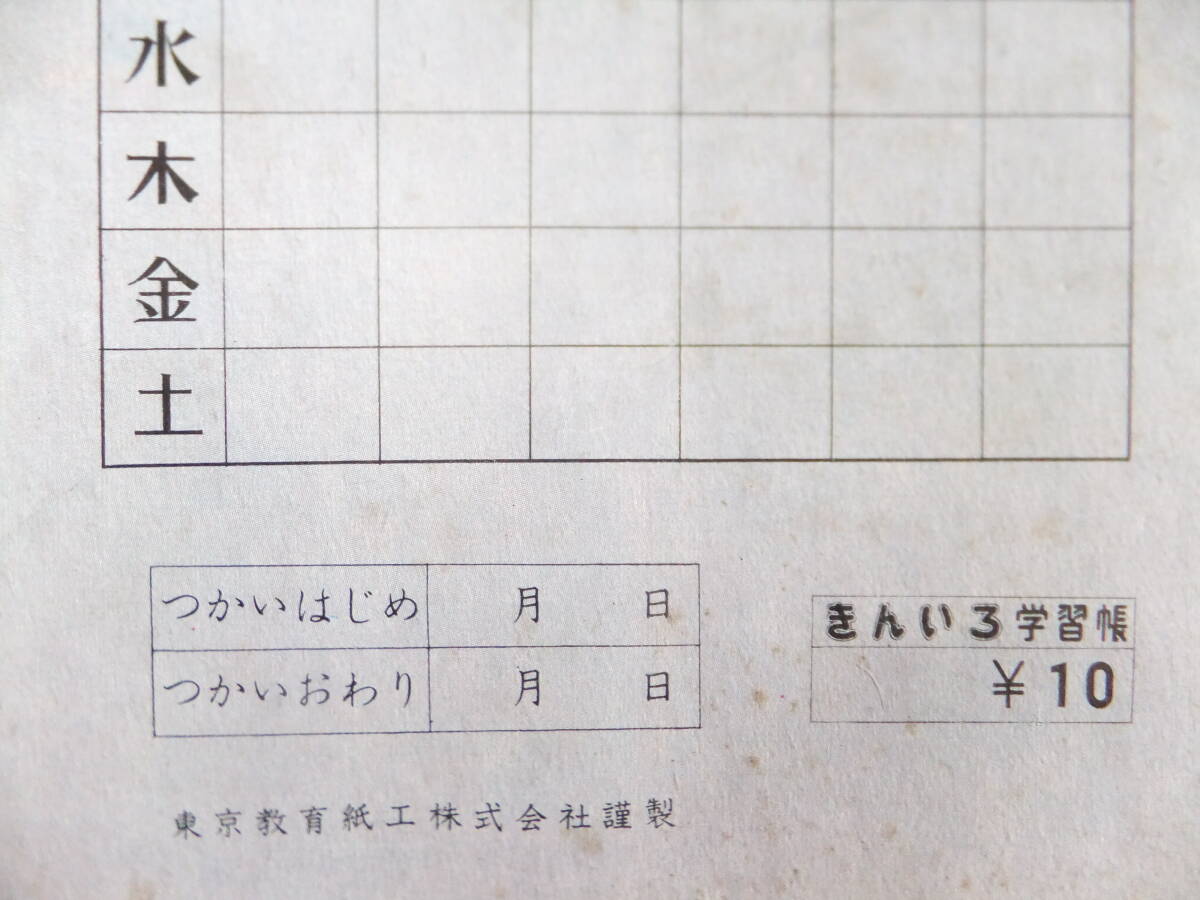 水
木
金
土
つかいはじめ 月 日
つかいおわり 月 日
きんいろ学習帳
¥10
東京教育紙工株式会社謹製